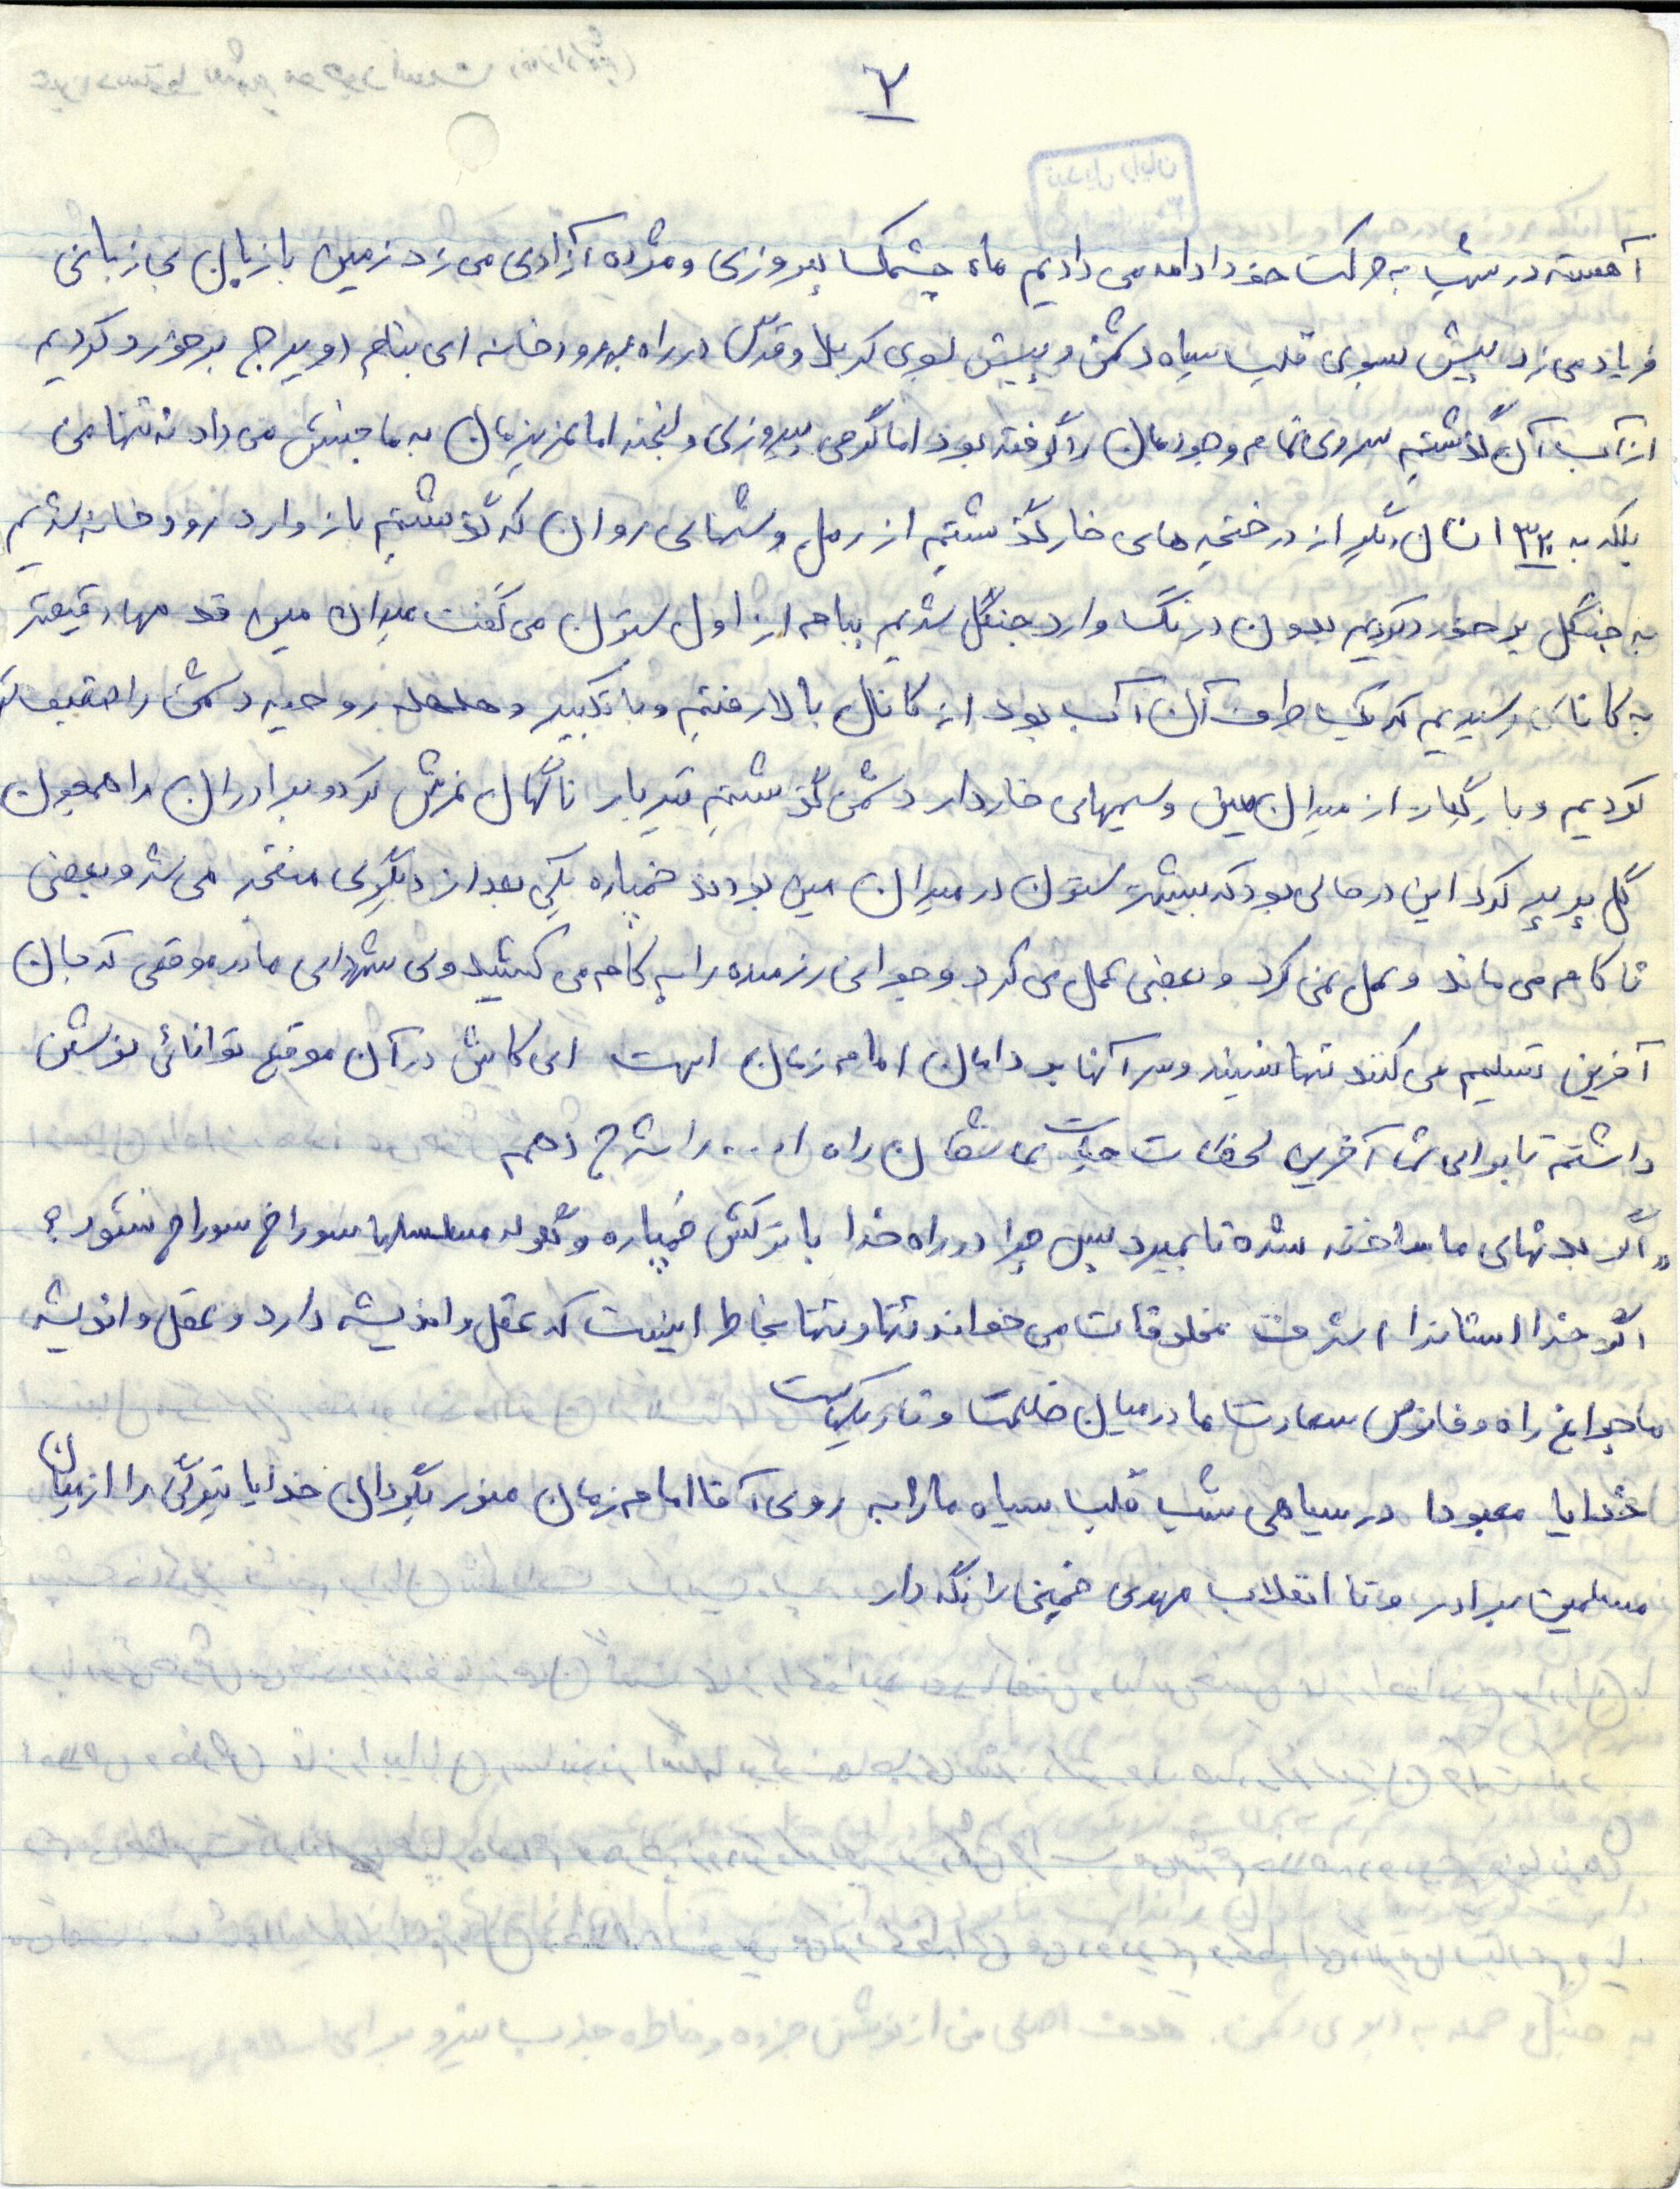 ۲
آهسته در شب به حرکت خود ادامه می دادیم ماه چشمک پیروزی و مژده آزادی می زد زمین با زبان بی زبانی
فریاد می زد پیش بسوی قلب سیاه دشمن و پیش بسوی کربلا و قدس در راه به رودخانه ای بنام دویرج برخورد کردیم
از آب آن گذشتیم سردی تمام وجودمان را گرفته بود اما گرمی پیروزی و لبخند امام عزیزمان به ما جنبش می داد نه تنها من
بلکه به ۳۲۰ انسان دیگر از درختچه های خار گذشتیم از رمل و شنهای روان که گذشتیم باز وارد رودخانه شدیم
به جنگل برخورد کردیم بدون درنگ وارد جنگل شدیم بیا جلو از اول ستون می گفت میدان مین قدمها دقیقتر
به کانال رسیدیم که یک طرف آن آب بود از کانال بالا رفتیم و با تکبیر و حمله روحیه دشمن را ضعیف تر
کردیم و بارگبار از میدان مین و سیمهای خاردار دشمن گذشتیم تیربار ناگهان غرش کرد و برادران را همچون
گل پرپر کرد این در حالی بود که بیشتر ستون در میدان مین بودند خمپاره یکی بعد از دیگری منفجر می شد و بعضی
ناکام می ماند و عمل نمی کرد و بعضی عمل می کرد و جوانی رزمنده را به کام می کشید ولی شهدای ما در موقعی که جان
آفرین تسلیم می کنند تنها نیستند و سر آنها بر دامان امام زمان است ای کاش در آن موقع توانائی نوشتن
داشتم تا برای شما آخرین لحظات حیات عاشقان راه او... را شرح دهم
„ اگر بدنهای ما ساخته شده تا بمیرد پس چرا در راه خدا با ترکش خمپاره و گلوله مسلسلها سوراخ سوراخ نشود ؟
اگر خدا انسانرا اشرف مخلوقات می خواند تنها و تنها بخاطر اینست که عقل و اندیشه دارد و عقل و اندیشه
ما چراغ راه و فانوس سعادت ما در میان ظلمت و تاریکیست
خدایا معبودا در سیاهی شب قلب سیاه ما را به روی آقا امام زمان منور بگردان خدایا تیرگی را از میان
مسلمین بردار و تا انقلاب مهدی خمینی را نگه دار